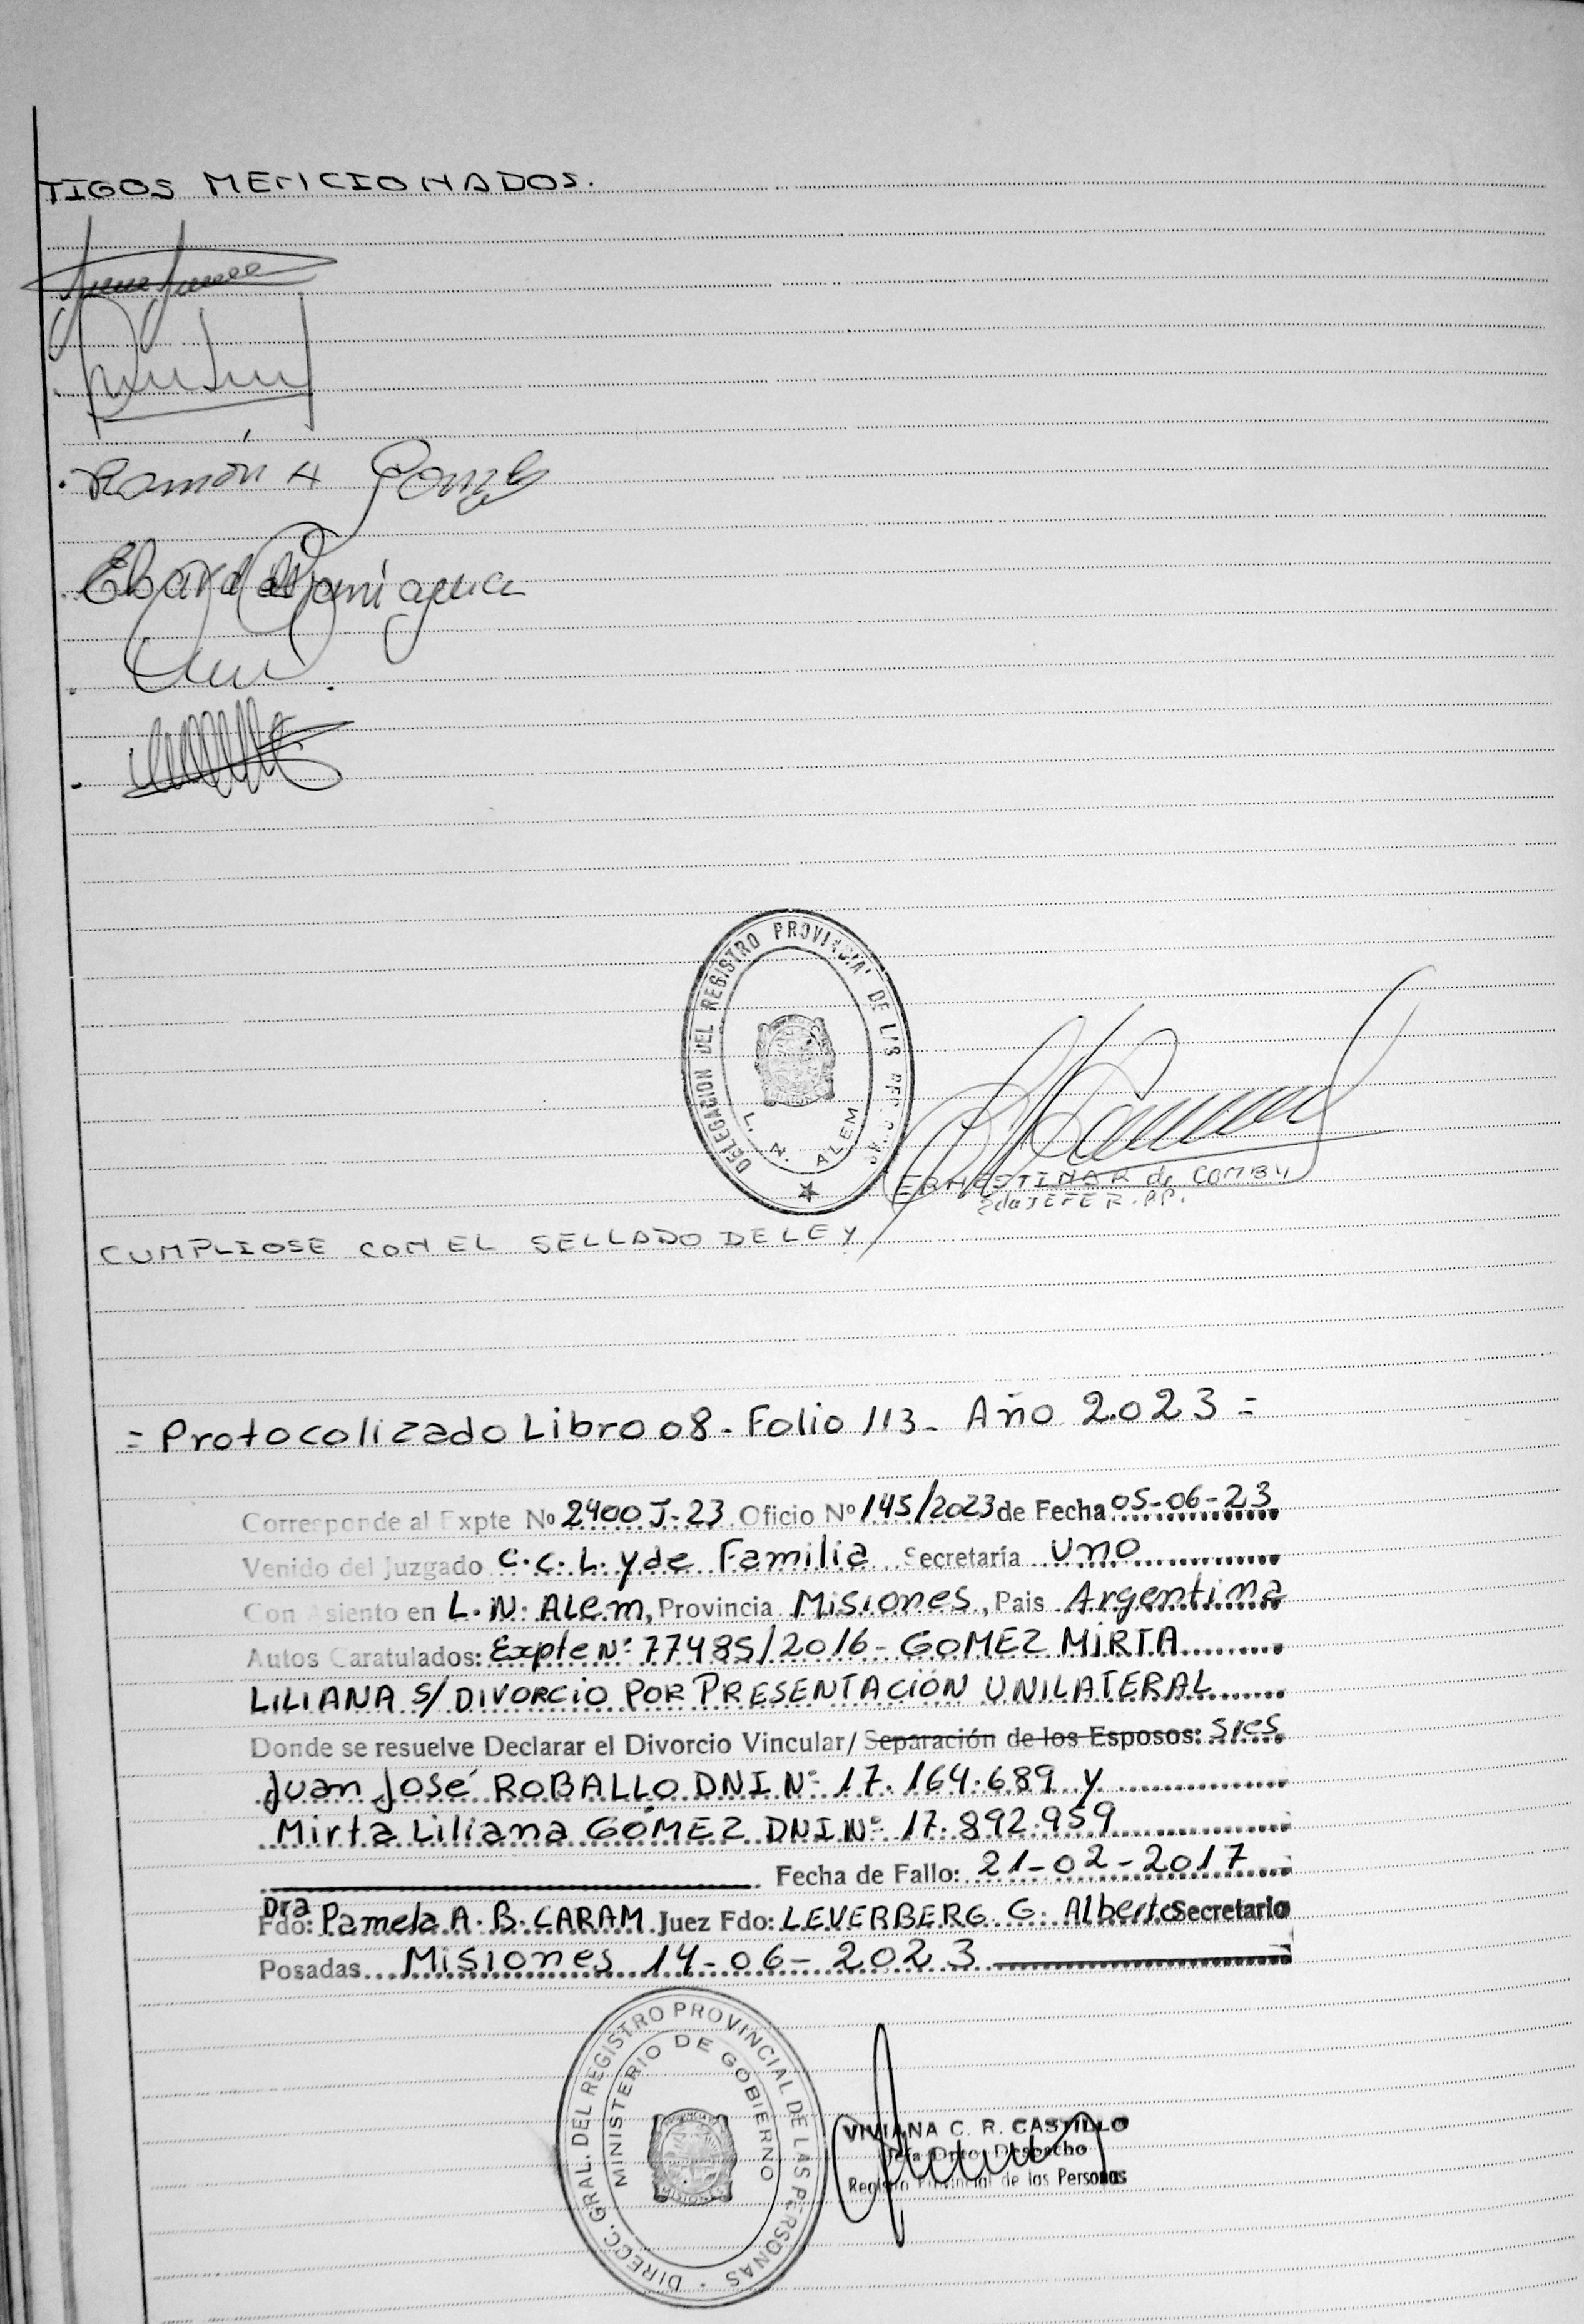 TIGOS MENCIONADOS.
Ramón A
DELEGACION DEL REGISTRO PROVINCIAL DE LAS
L. N. ALEM
ERNESTINA R de COMBY
JEFE R.P.P.
CUMPLIOSE CON EL SELLADO DE LEY
= Protocolizado Libro 08 - Folio 113 - Año 2.023 =
Corresponde al Expte Nº 2400 J-23 Oficio Nº 145/2023 de Fecha 05-06-23
Venido del Juzgado C.C.L. y de Familia Secretaría Uno
Con Asiento en L.N. Alem, Provincia Misiones, Pais Argentina
Autos Caratulados: Expte Nº 77485/2016 - GOMEZ MIRTA
LILIANA S/ DIVORCIO POR PRESENTACIÓN UNILATERAL
Donde se resuelve Declarar el Divorcio Vincular/ Separación de los Esposos: Sres
Juan José ROBALLO DNI Nº 17.164.689 y
Mirta Liliana GÓMEZ DNI Nº 17.892.959
Fecha de Fallo: 21-02-2017
Dra
Fdo: Pamela A. B. CARAM Juez Fdo: LEVERBERG G. Alberto Secretario
Posadas Misiones 14-06-2023
DIRECC. GRAL. DEL REGISTRO PROVINCIAL DE LAS PERSONAS
MINISTERIO DE GOBIERNO
MISIONES
VIVIANA C. R. CASTILLO
Jefa Dpto. Despacho
Registro Provincial de las Personas